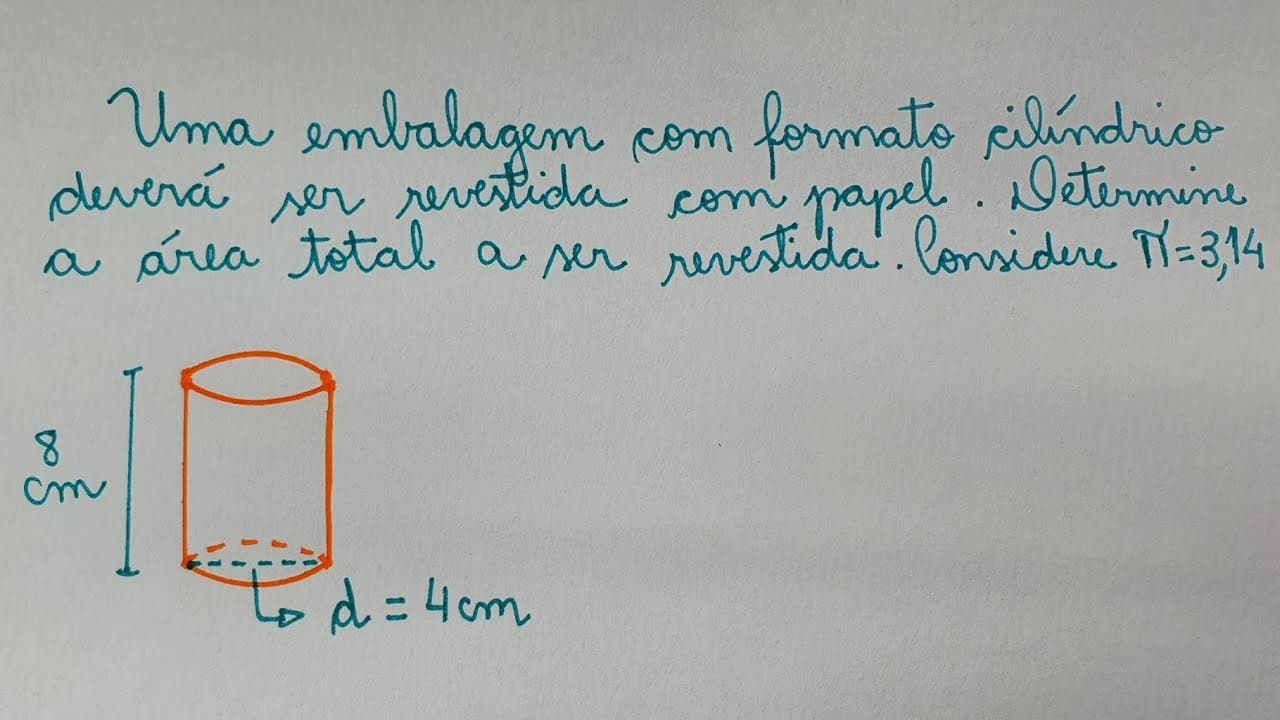 Uma embalagem com formato cilíndrico
deverá ser revestida com papel. Determine
a área total a ser revestida. Considere π=3,14
8
cm
d = 4cm